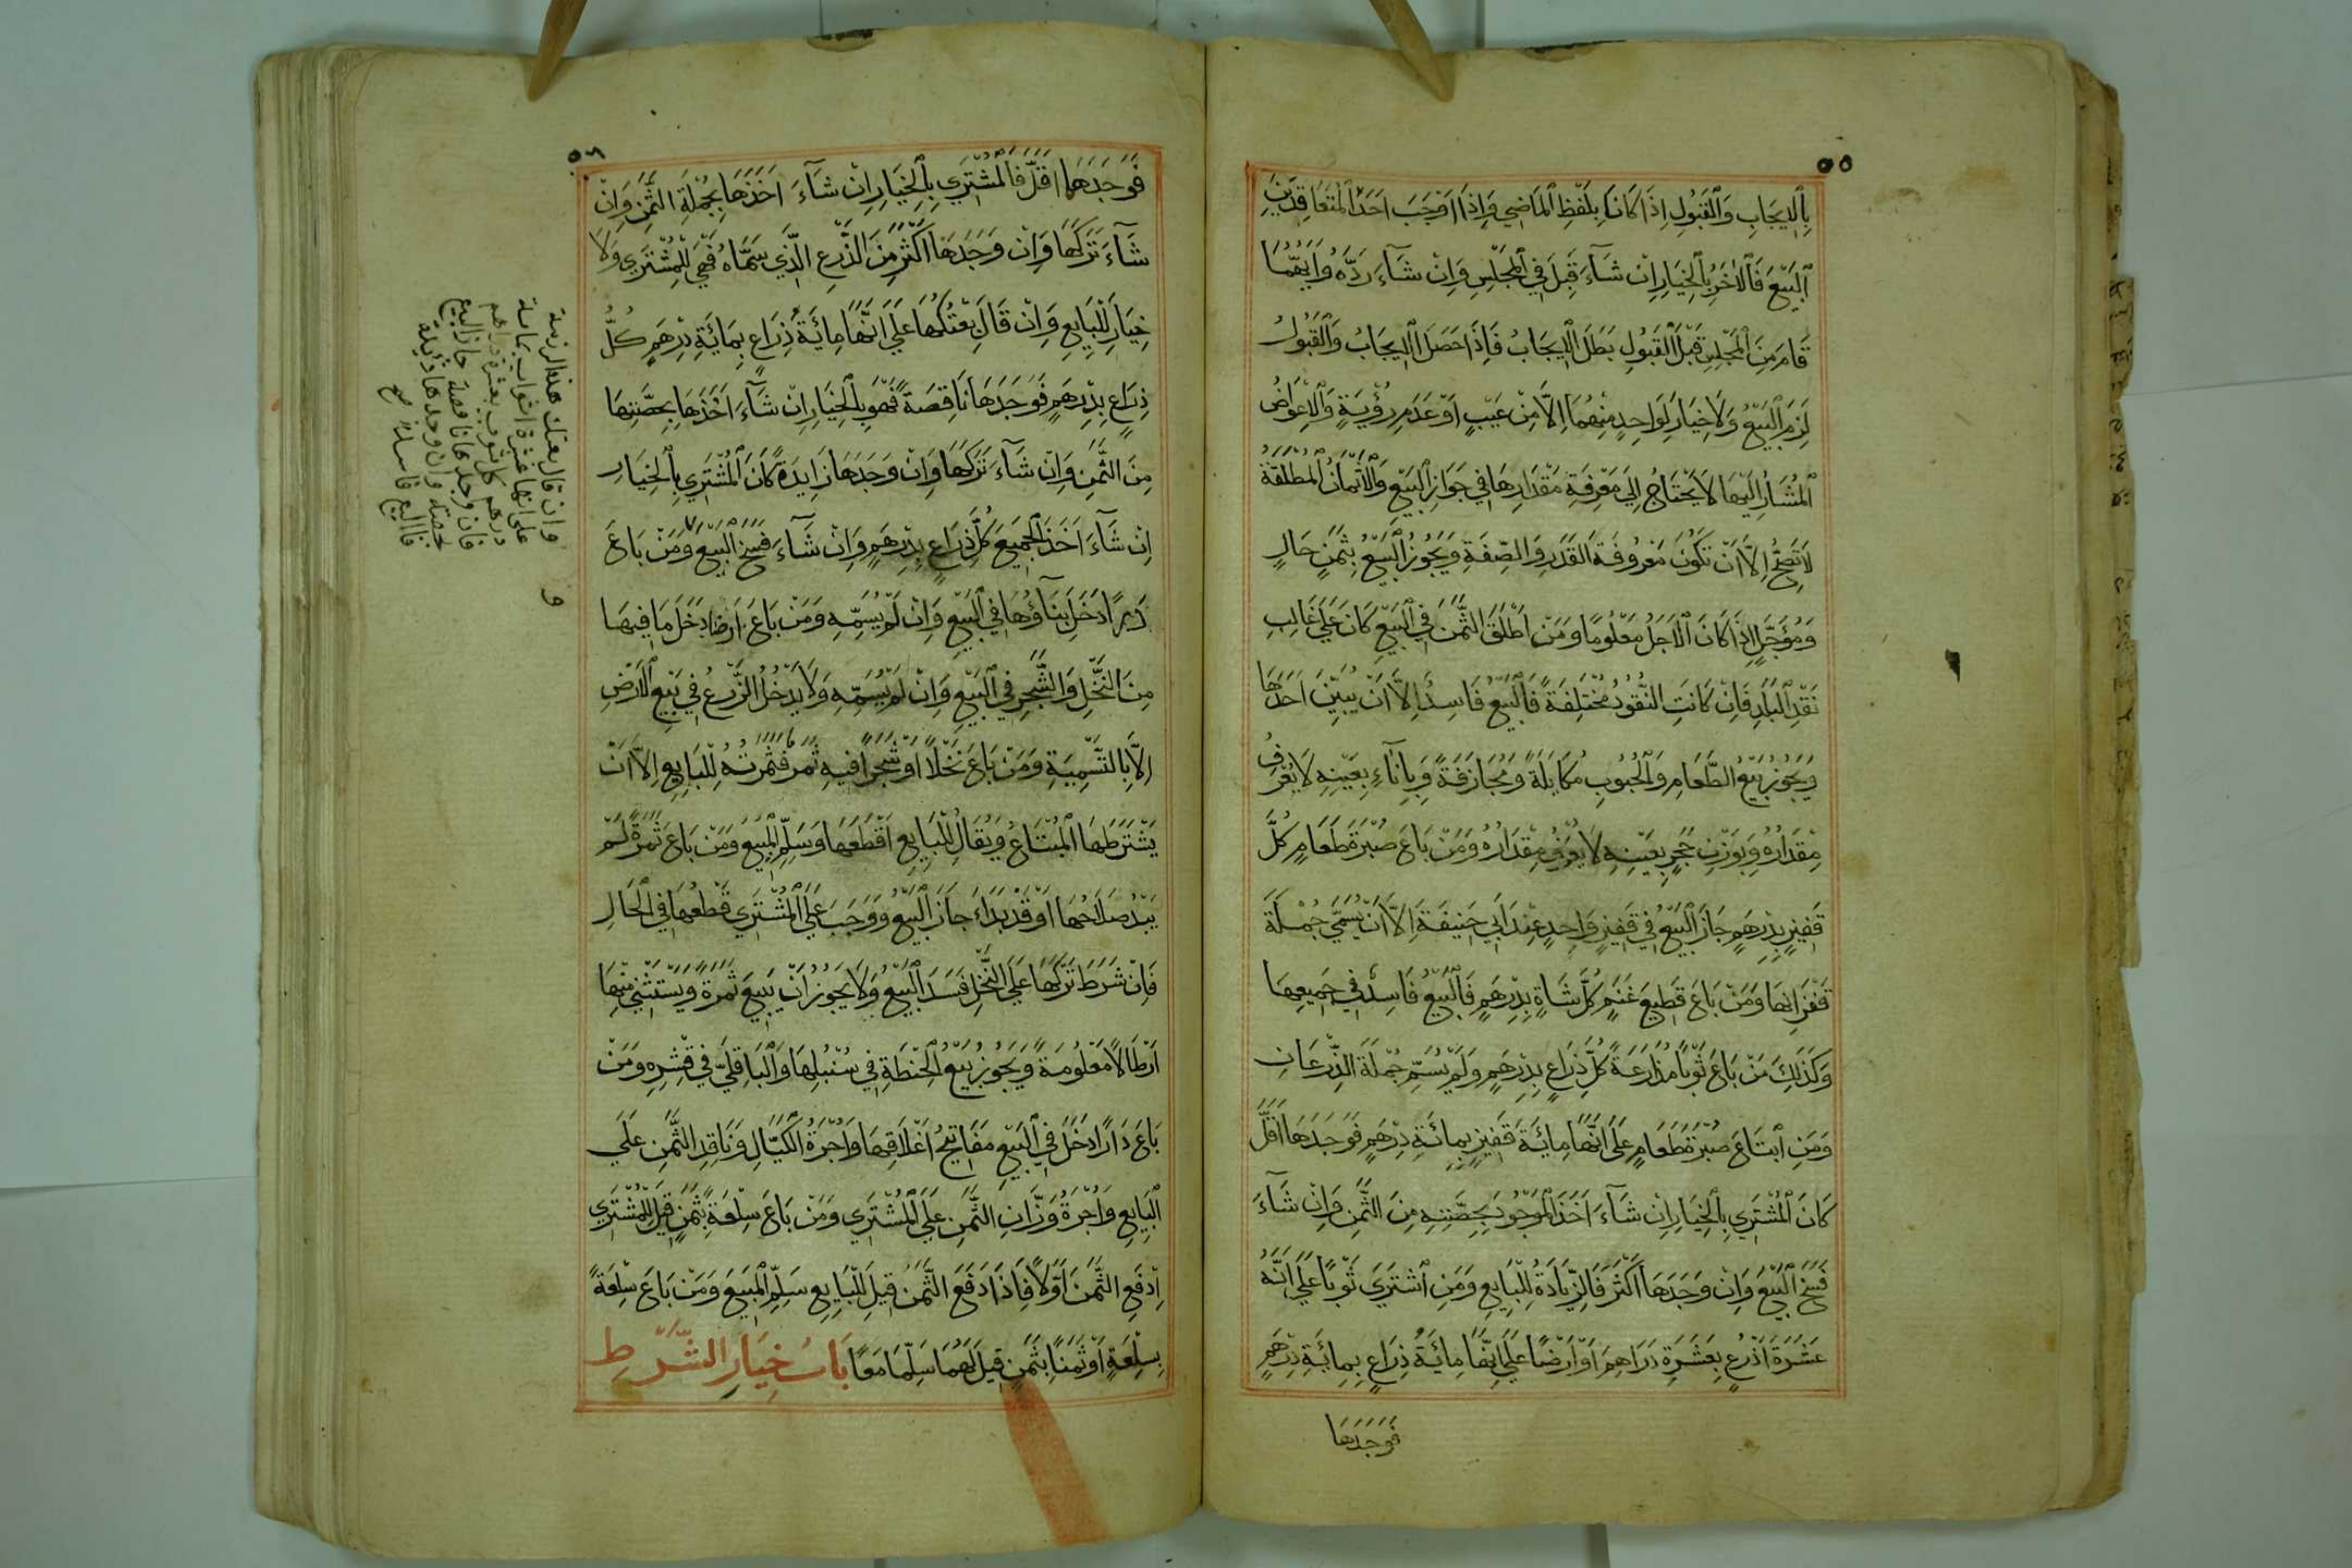 ٥٥
بِالْإِيجَابِ وَالْقَبُولِ اِذَا كَانَا بِلَفْظِ الْمَاضِي وَاِذَا اَوْجَبَ اَحَدُ الْمُتَعَاقِدَيْنِ
الْبَيْعَ فَالْاٰخَرُ بِالْخِيَارِ اِنْ شَآءَ قَبِلَ فِي الْمَجْلِسِ وَاِنْ شَآءَ رَدَّهُ وَاَيُّهُمَا
قَامَ مِنَ الْمَجْلِسِ قَبْلَ الْقَبُولِ بَطَلَ الْاِيجَابُ فَاِذَا حَصَلَ الْاِيجَابُ وَالْقَبُولُ
لَزِمَ الْبَيْعُ وَلَا خِيَارَ لِوَاحِدٍ مِنْهُمَا اِلَّا مِنْ عَيْبٍ اَوْ عَدَمِ رُؤْيَةٍ وَالْاَعْوَاضُ
الْمُشَارُ اِلَيْهَا لَا يَحْتَاجُ اِلَى مَعْرِفَةِ مِقْدَارِهَا فِي جَوَازِ الْبَيْعِ وَالْاَثْمَانُ الْمُطْلَقَةُ
لَا تَصِحُّ اِلَّا اَنْ تَكُونَ مَعْرُوفَةَ الْقَدْرِ وَالصِّفَةِ وَيَجُوزُ الْبَيْعُ بِثَمَنٍ حَالٍ
وَمُؤَجَّلٍ اِذَا كَانَ الْاَجَلُ مَعْلُومًا وَمَنْ اَطْلَقَ الثَّمَنَ فِي الْبَيْعِ كَانَ عَلَى غَالِبِ
نَقْدِ الْبَلَدِ فَاِنْ كَانَتِ النُّقُودُ مُخْتَلِفَةً فَالْبَيْعُ فَاسِدٌ اِلَّا اَنْ يُبَيِّنَ اَحَدَهَا
وَيَجُوزُ بَيْعُ الطَّعَامِ وَالْحُبُوبِ مُكَايَلَةً وَمُجَازَفَةً وَبِاِنَآءٍ بِعَيْنِهِ لَا يُعْرَفُ
مِقْدَارُهُ وَبِوَزْنِ حَجَرٍ بِعَيْنِهِ لَا يُعْرَفُ مِقْدَارُهُ وَمَنْ بَاعَ صُبْرَةَ طَعَامٍ كُلَّ
قَفِيزٍ بِدِرْهَمٍ جَازَ الْبَيْعُ فِي قَفِيزٍ وَاحِدٍ عِنْدَ اَبِي حَنِيفَةَ اِلَّا اَنْ يُسَمِّيَ جُمْلَةَ
قُفْزَانِهَا وَمَنْ بَاعَ قَطِيعَ غَنَمٍ كُلَّ شَاةٍ بِدِرْهَمٍ فَالْبَيْعُ فَاسِدٌ فِي جَمِيعِهَا
وَكَذَلِكَ مَنْ بَاعَ ثَوْبًا مُذَارَعَةً كُلَّ ذِرَاعٍ بِدِرْهَمٍ وَلَمْ يُسَمِّ جُمْلَةَ الذِّرْعَانِ
وَمَنِ ابْتَاعَ صُبْرَةَ طَعَامٍ عَلَى اَنَّهَا مِائَةَ قَفِيزٍ بِمِائَةِ دِرْهَمٍ فَوَجَدَهَا اَقَلَّ
كَانَ الْمُشْتَرِي بِالْخِيَارِ اِنْ شَآءَ اَخَذَ الْمَوْجُودَ بِحِصَّتِهِ مِنَ الثَّمَنِ وَاِنْ شَآءَ
فَسَخَ الْبَيْعَ وَاِنْ وَجَدَهَا اَكْثَرَ فَالزِّيَادَةُ لِلْبَايِعِ وَمَنِ اشْتَرَى ثَوْبًا عَلَى اَنَّهُ
عَشَرَةَ اَذْرُعٍ بِعَشَرَةِ دَرَاهِمَ اَوْ اَرْضًا عَلَى اَنَّهَا مِائَةُ ذِرَاعٍ بِمِائَةِ دِرْهَمٍ
فَوَجَدَهَا
٥٦
فَوَجَدَهَا اَقَلَّ فَالْمُشْتَرِي بِالْخِيَارِ اِنْ شَآءَ اَخَذَهَا بِجُمْلَةِ الثَّمَنِ وَاِنْ
شَآءَ تَرَكَهَا وَاِنْ وَجَدَهَا اَكْثَرَ مِنَ الذَّرْعِ الَّذِي سَمَّاهُ فَهِيَ لِلْمُشْتَرِي وَلَا
خِيَارَ لِلْبَايِعِ وَاِنْ قَالَ بِعْتُكَهَا عَلَى اَنَّهَا مِائَةُ ذِرَاعٍ بِمِائَةِ دِرْهَمٍ كُلُّ
ذِرَاعٍ بِدِرْهَمٍ فَوَجَدَهَا نَاقِصَةً فَهُوَ بِالْخِيَارِ اِنْ شَآءَ اَخَذَهَا بِحِصَّتِهَا
مِنَ الثَّمَنِ وَاِنْ شَآءَ تَرَكَهَا وَاِنْ وَجَدَهَا زَايِدَةً كَانَ الْمُشْتَرِي بِالْخِيَارِ
اِنْ شَآءَ اَخَذَ الْجَمِيعَ كُلَّ ذِرَاعٍ بِدِرْهَمٍ وَاِنْ شَآءَ فَسَخَ الْبَيْعَ وَمَنْ بَاعَ
دَارًا دَخَلَ بِنَآؤُهَا فِي الْبَيْعِ وَاِنْ لَمْ يُسَمِّهِ وَمَنْ بَاعَ اَرْضًا دَخَلَ مَا فِيهَا
مِنَ النَّخْلِ وَالشَّجَرِ فِي الْبَيْعِ وَاِنْ لَمْ يُسَمِّهِ وَلَا يَدْخُلُ الزَّرْعُ فِي بَيْعِ الْاَرْضِ
اِلَّا بِالتَّسْمِيَةِ وَمَنْ بَاعَ نَخْلًا اَوْ شَجَرًا فِيهِ ثَمَرٌ فَثَمَرَتُهُ لِلْبَايِعِ اِلَّا اَنْ
يَشْتَرِطَهَا الْمُبْتَاعُ وَيُقَالُ لِلْبَايِعِ اقْطَعْهَا وَسَلِّمِ الْمَبِيعَ وَمَنْ بَاعَ ثَمَرَةً لَمْ
يَبْدُ صَلَاحُهَا اَوْ قَدْ بَدَاءَ جَازَ الْبَيْعُ وَوَجَبَ عَلَى الْمُشْتَرِي قَطْعُهَا فِي الْحَالِ
فَاِنْ شَرَطَ تَرْكَهَا عَلَى النَّخْلِ فَسَدَ الْبَيْعُ وَلَا يَجُوزُ اَنْ يَبِيعَ ثَمَرَةً وَيَسْتَثْنِيَ مِنْهَا
اَرْطَالًا مَعْلُومَةً وَيَجُوزُ بَيْعُ الْحِنْطَةِ فِي سُنْبُلِهَا وَالْبَاقِلَّى فِي قِشْرِهِ وَمَنْ
بَاعَ دَارًا دَخَلَ فِي الْبَيْعِ مَفَاتِيحُ اَغْلَاقِهَا وَاُجْرَةُ الْكَيَّالِ وَنَاقِدِ الثَّمَنِ عَلَى
الْبَايِعِ وَاُجْرَةُ وَزَّانِ الثَّمَنِ عَلَى الْمُشْتَرِي وَمَنْ بَاعَ سِلْعَةً بِثَمَنٍ قِيلَ لِلْمُشْتَرِي
اِدْفَعِ الثَّمَنَ اَوَّلًا فَاِذَا دَفَعَ الثَّمَنَ قِيلَ لِلْبَايِعِ سَلِّمِ الْمَبِيعَ وَمَنْ بَاعَ سِلْعَةً
بِسِلْعَةٍ اَوْ ثَمَنًا بِثَمَنٍ قِيلَ لَهُمَا سَلِّمَا مَعًا بَابُ خِيَارِ الشَّرْطِ
وان قال بعتك هذه الرزمة
على انها عشرة اثواب بمائة
درهم كل ثوب بعشرة دراهم
فان وجدها ناقصة جاز البيع
بحصته وان وجدها زايدة
فالبيع فاسد